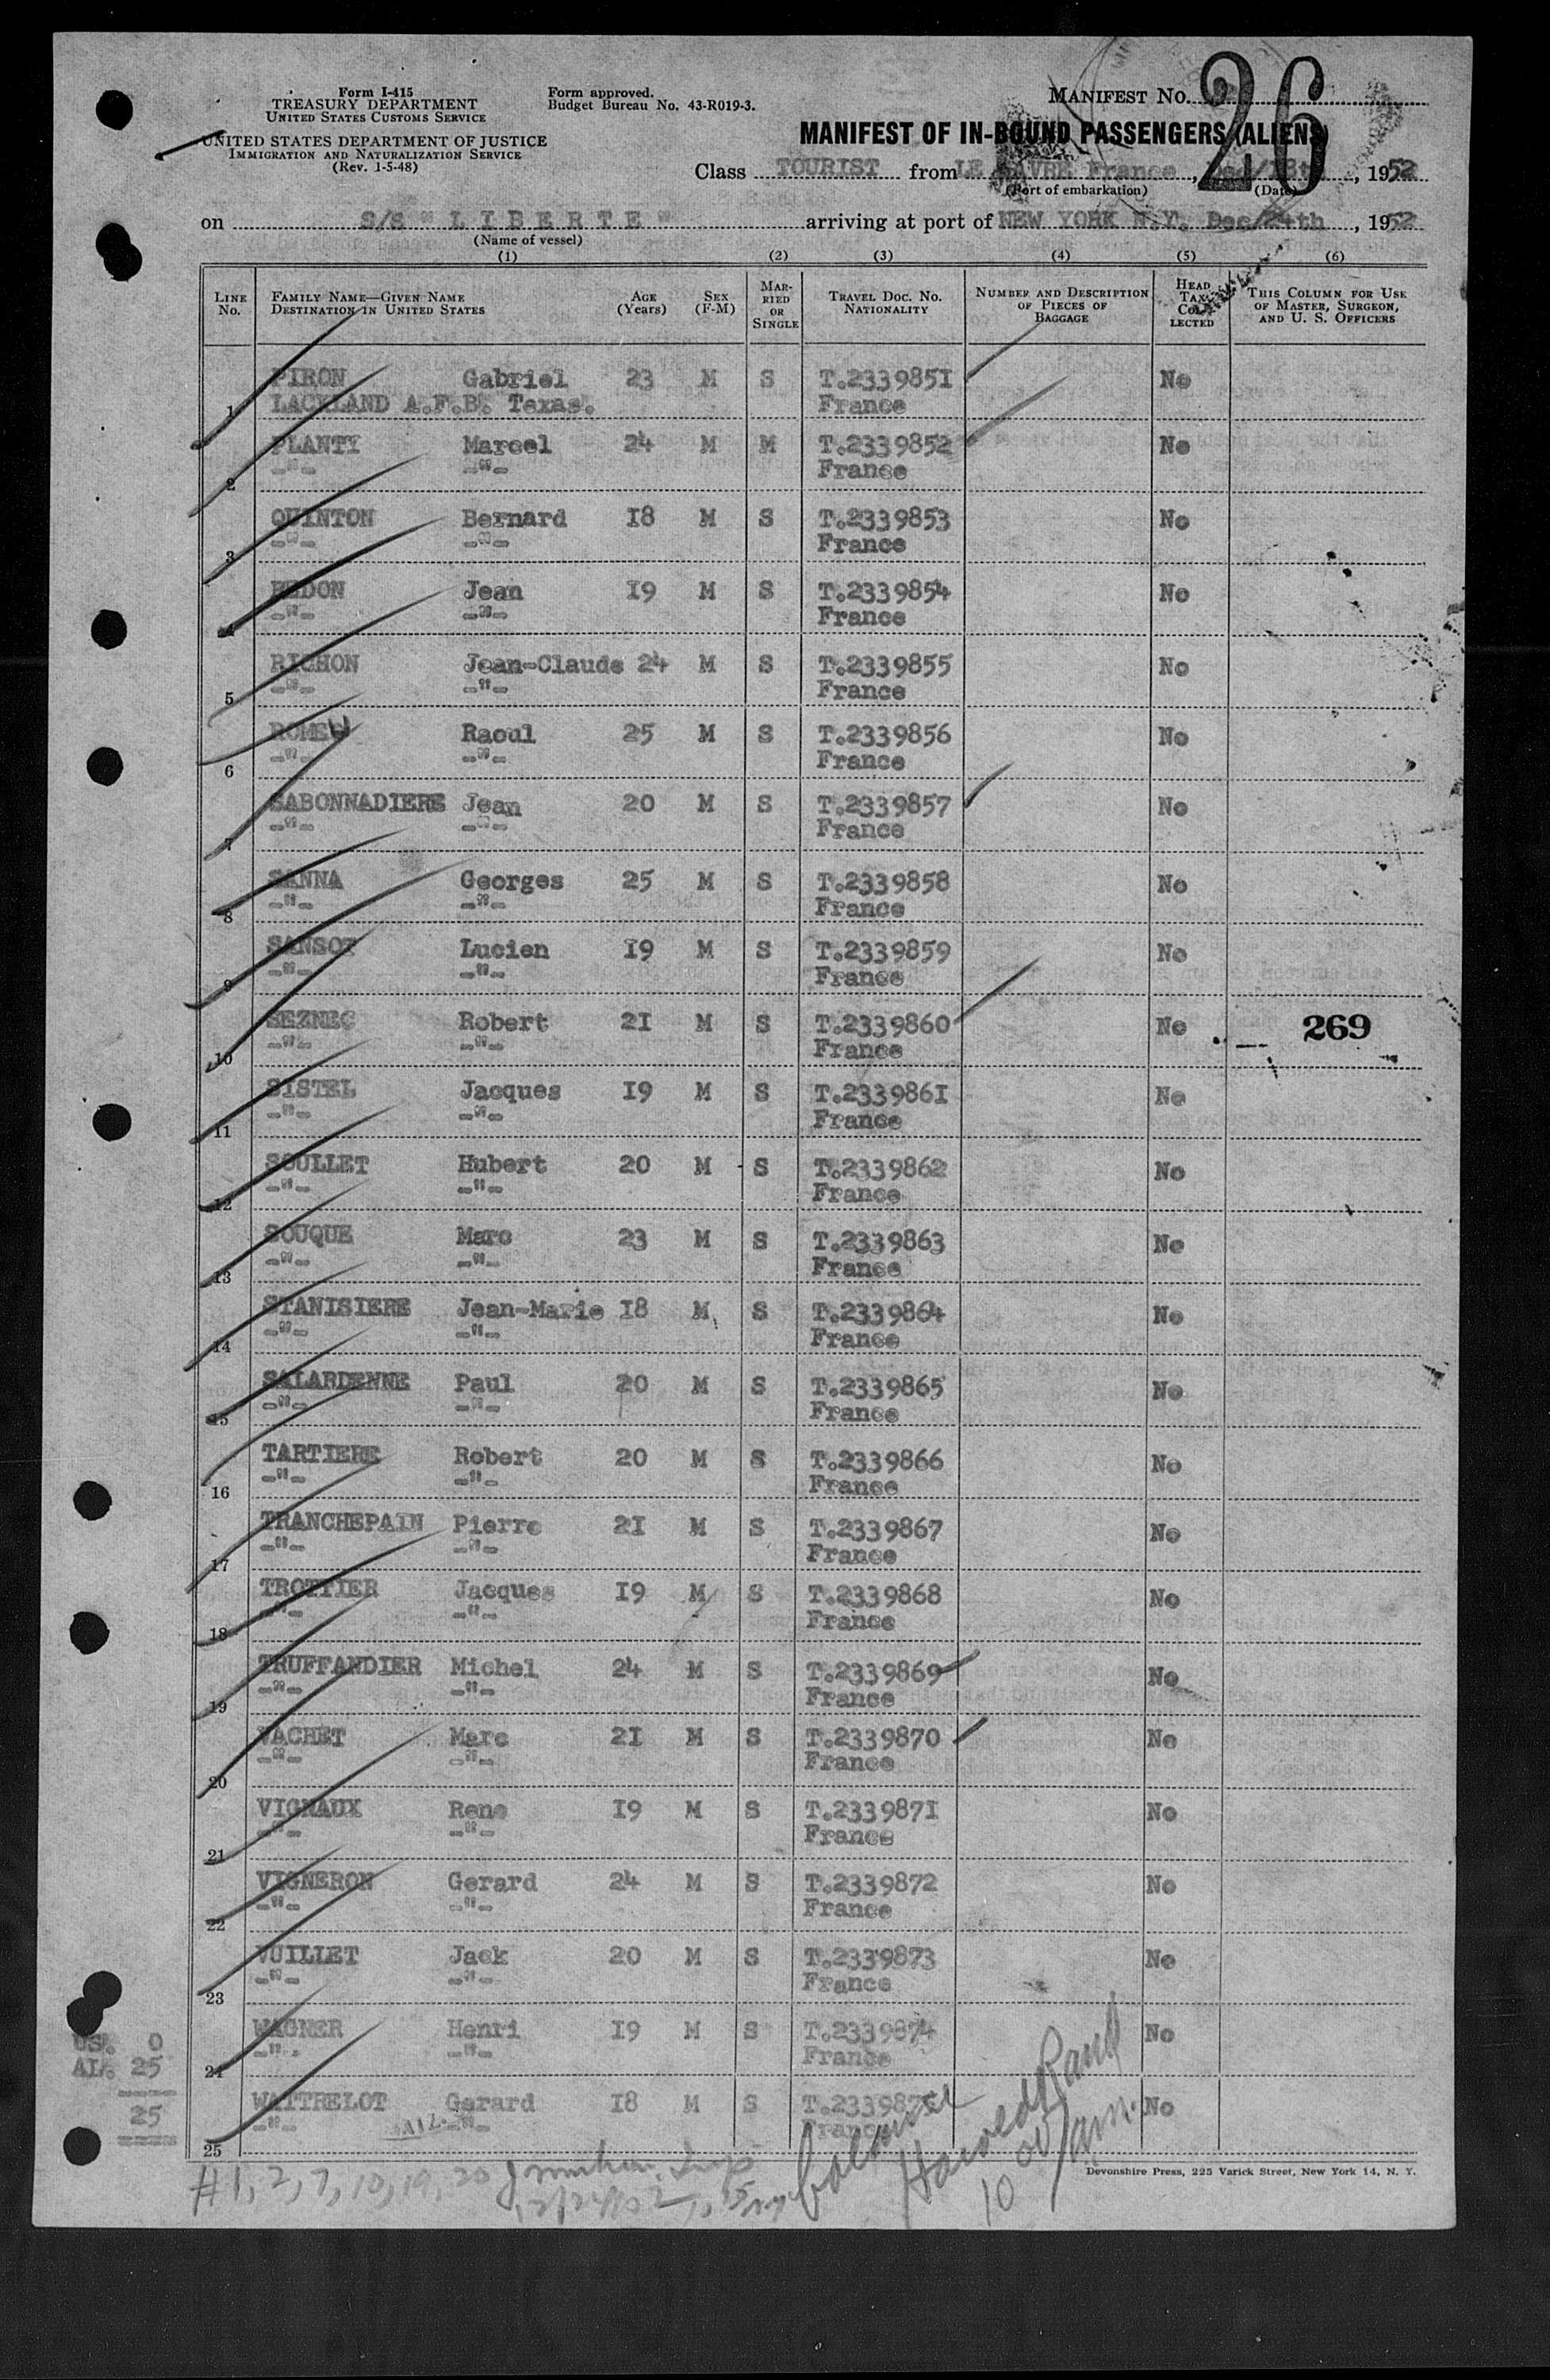 Form I-415
TREASURY DEPARTMENT
UNITED STATES CUSTOMS SERVICE
UNITED STATES DEPARTMENT OF JUSTICE
IMMIGRATION AND NATURALIZATION SERVICE
(Rev. 1-5-48)
Form approved.
Budget Bureau No. 43-R019-3.
MANIFEST No. 26
MANIFEST OF IN-BOUND PASSENGERS (ALIENS)
Class TOURIST from LE HAVRE France , Dec/18th , 1952
(Port of embarkation) (Date)
on S/S " L I B E R T E " arriving at port of NEW YORK N.Y. Dec/24th , 1952
(Name of vessel)
(1) (2) (3) (4) (5) (6)
LINE No. FAMILY NAME—GIVEN NAME DESTINATION IN UNITED STATES AGE (Years) SEX (F-M) MARRIED OR SINGLE TRAVEL DOC. NO. NATIONALITY NUMBER AND DESCRIPTION OF PIECES OF BAGGAGE HEAD TAX COLLECTED THIS COLUMN FOR USE OF MASTER, SURGEON, AND U. S. OFFICERS
PIRON Gabriel 23 M S T.2339851 No
1 LACKLAND A.F.B. Texas. France
PLANTY Marcel 24 M M T.2339852 No
2 -"- -"- France
QUINTON Bernard 18 M S T.2339853 No
3 -"- -"- France
REDON Jean 19 M S T.2339854 No
4 -"- -"- France
RICHON Jean-Claude 24 M S T.2339855 No
5 -"- -"- France
ROMEU Raoul 25 M S T.2339856 No
6 -"- -"- France
SABONNADIERE Jean 20 M S T.2339857 No
7 -"- -"- France
SANNA Georges 25 M S T.2339858 No
8 -"- -"- France
SANSOT Lucien 19 M S T.2339859 No
9 -"- -"- France
SEZNEC Robert 21 M S T.2339860 No 269
10 -"- -"- France
SISTEL Jacques 19 M S T.2339861 No
11 -"- -"- France
SOULLET Hubert 20 M S T.2339862 No
12 -"- -"- France
SOUQUE Marc 23 M S T.2339863 No
13 -"- -"- France
STANISIERE Jean-Marie 18 M S T.2339864 No
14 -"- -"- France
SALARDENNE Paul 20 M S T.2339865 No
15 -"- -"- France
TARTIERE Robert 20 M S T.2339866 No
16 -"- -"- France
TRANCHEPAIN Pierre 21 M S T.2339867 No
17 -"- -"- France
TROTTIER Jacques 19 M S T.2339868 No
18 -"- -"- France
TRUFFANDIER Michel 24 M S T.2339869 No
19 -"- -"- France
VACHET Marc 21 M S T.2339870 No
20 -"- -"- France
VIGNAUX Rene 19 M S T.2339871 No
21 -"- -"- France
VIGNERON Gerard 24 M S T.2339872 No
22 -"- -"- France
VUILLET Jack 20 M S T.2339873 No
23 -"- -"- France
WAGNER Henri 19 M S T.2339874 No
24 -"- -"- France
WATTRELOT Gerard 18 M S T.2339875 No
25 -"- -"- France
US. 0
AL. 25
25
Devonshire Press, 225 Varick Street, New York 14, N. Y.
#1, 2, 7, 10, 19, 20
12/24/52
10 00 am.